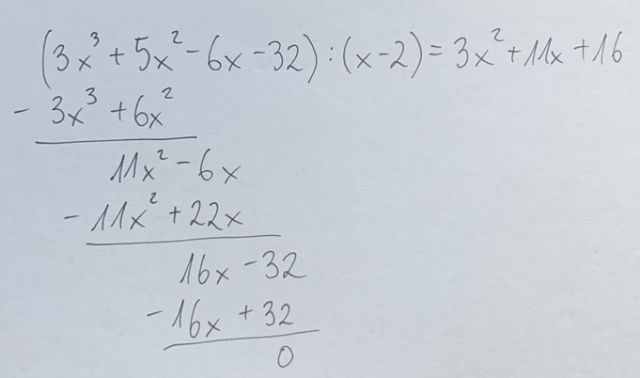 (3x³ + 5x² - 6x - 32) : (x - 2) = 3x² + 11x + 16
- 3x³ + 6x²
11x² - 6x
- 11x² + 22x
16x - 32
- 16x + 32
0